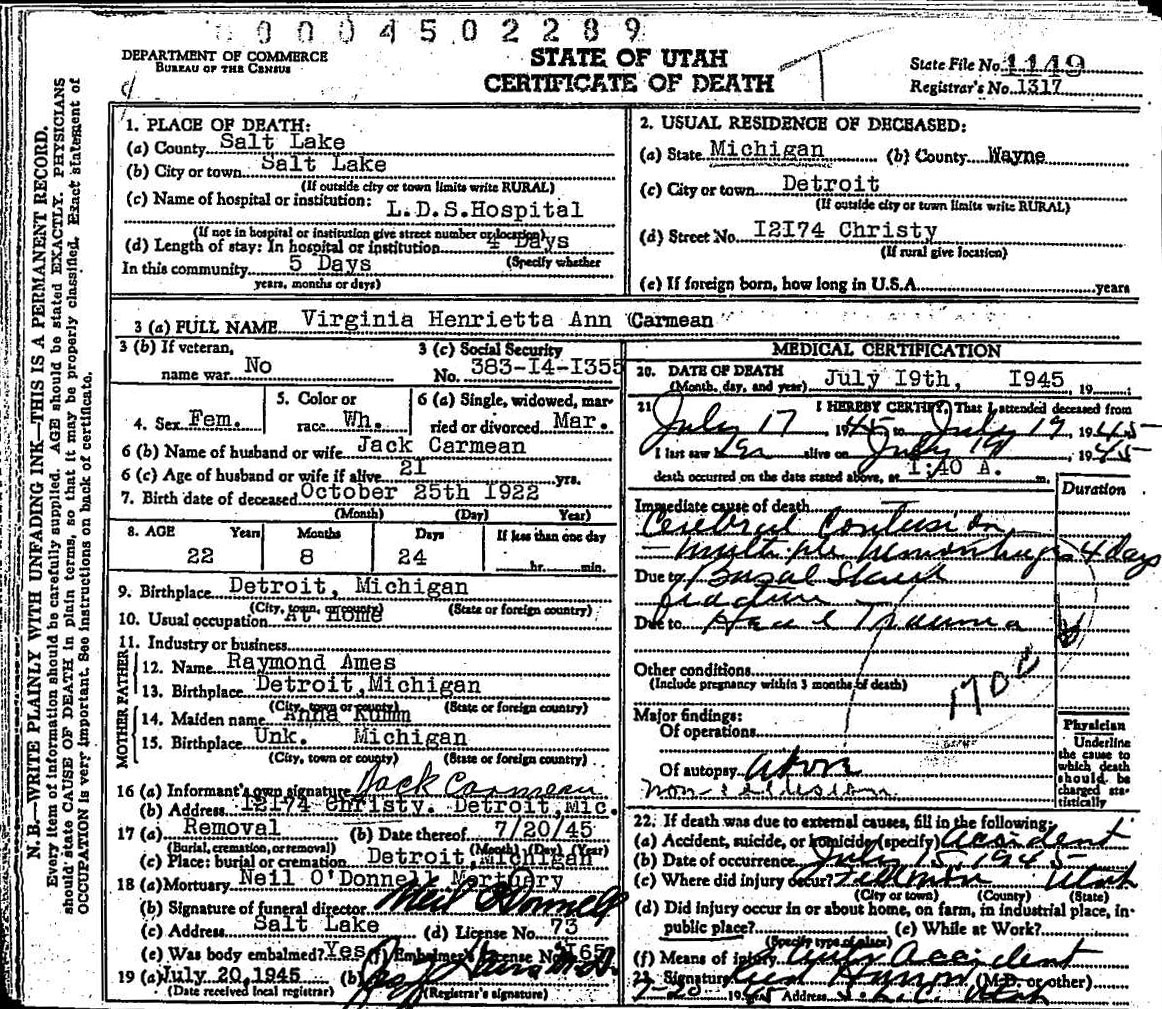 0004502289
DEPARTMENT OF COMMERCE
BUREAU OF THE CENSUS
STATE OF UTAH
CERTIFICATE OF DEATH
State File No. 1149
Registrar's No. 1317
N. B.—WRITE PLAINLY WITH UNFADING INK—THIS IS A PERMANENT RECORD.
Every item of information should be carefully supplied. AGE should be stated EXACTLY. PHYSICIANS
should state CAUSE OF DEATH in plain terms, so that it may be properly classified. Exact statement of
OCCUPATION is very important. See instructions on back of certificate.
1. PLACE OF DEATH:
(a) County Salt Lake
(b) City or town Salt Lake
(If outside city or town limits write RURAL)
(c) Name of hospital or institution: L.D.S.Hospital
(If not in hospital or institution give street number or location)
(d) Length of stay: In hospital or institution 4 Days
(Specify whether
In this community 5 Days
years, months or days)
2. USUAL RESIDENCE OF DECEASED:
(a) State Michigan (b) County Wayne
(c) City or town Detroit
(If outside city or town limits write RURAL)
(d) Street No. I2I74 Christy
(If rural give location)
(e) If foreign born, how long in U.S.A. years
3 (a) FULL NAME Virginia Henrietta Ann Carmean
3 (b) If veteran,
name war No
3 (c) Social Security
No. 383-I4-I355
4. Sex Fem.
5. Color or
race Wh.
6 (a) Single, widowed, mar-
ried or divorced Mar.
6 (b) Name of husband or wife Jack Carmean
6 (c) Age of husband or wife if alive 21 yrs.
7. Birth date of deceased October 25th I922
(Month) (Day) Year)
8. AGE Years Months Days If less than one day
22 8 24 hr. min.
9. Birthplace Detroit, Michigan
(City, town, or county) (State or foreign country)
10. Usual occupation At Home
11. Industry or business
FATHER
12. Name Raymond Ames
13. Birthplace Detroit, Michigan
(City, town or county) (State or foreign country)
MOTHER
14. Maiden name Anna Kumm
15. Birthplace Unk. Michigan
(City, town or county) (State or foreign country)
16 (a) Informant's own signature Jack Carmean
(b) Address I2I74 Christy. Detroit,Mic.
17 (a) Removal (b) Date thereof 7/20/45
(Burial, cremation, or removal) (Month) (Day) (Year)
(c) Place: burial or cremation Detroit, Michigan
18 (a) Mortuary Neil O'Donnell Mortuary
(b) Signature of funeral director Neil O'Donnell
(c) Address Salt Lake (d) License No. 73
(e) Was body embalmed? Yes (f) Embalmer's License No. I65
19 (a) July 20,1945 (b)
(Date received local registrar) (Registrar's signature)
MEDICAL CERTIFICATION
20. DATE OF DEATH
(Month, day, and year) July I9th, I945, 19
21 I HEREBY CERTIFY, That I attended deceased from
July 17 1945 to July 19, 1945
I last saw her alive on July 19, 1945
death occurred on the date stated above, at 1:40 A. m.
Duration
Immediate cause of death
Cerebral Contusion
— multiple hemorrhages 4 days
Due to Basal Skull
fracture
Due to Head Trauma
Other conditions
(Include pregnancy within 3 months of death)
170c
Major findings:
Of operations
Of autopsy above
Physician
Underline
the cause to
which death
should be
charged sta-
tistically
22. If death was due to external causes, fill in the following:
(a) Accident, suicide, or homicide (specify) Accident
(b) Date of occurrence July 15, 1945
(c) Where did injury occur? Fillmore Utah
(City or town) (County) (State)
(d) Did injury occur in or about home, on farm, in industrial place, in-
public place? (e) While at Work?
(Specify type of place)
(f) Means of injury Auto Accident
23. Signature (M.D. or other)
7-20 1945 Address S. L. C. Utah